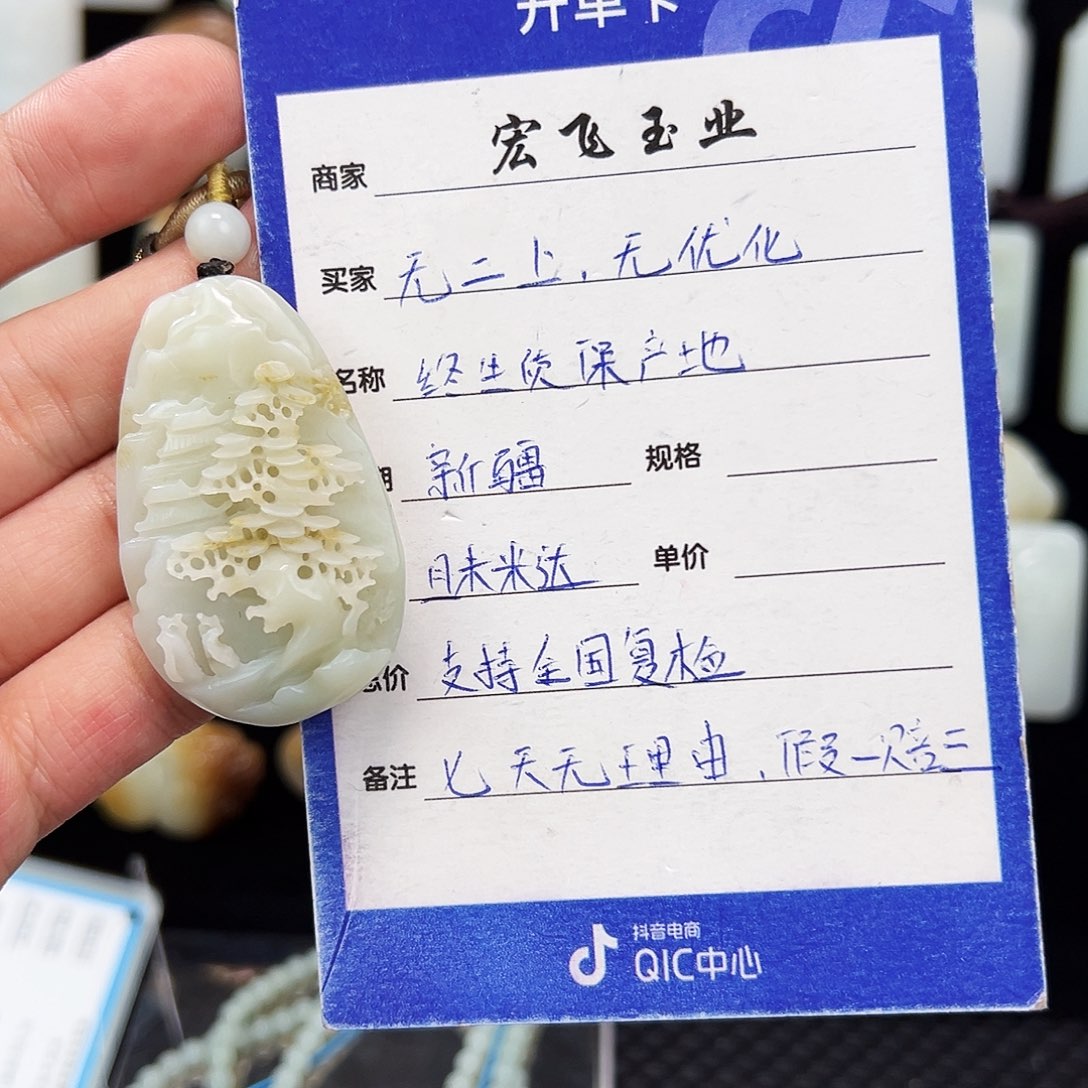 开单卡
商家 宏飞玉业
买家 无二上,无优化
名称 终生质保产地
期 新疆 规格
且末米达 单价
总价 支持全国复检
备注 七天无理由,假一赔三
抖音电商
QIC中心